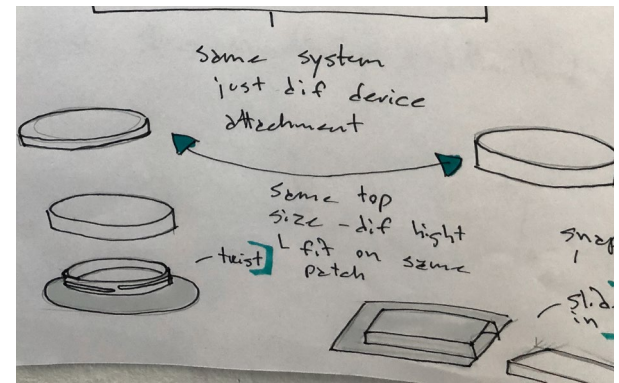 same system
just dif device
attachment
same top
size - dif hight
└ fit on same
patch
- twist
snap
slide
in